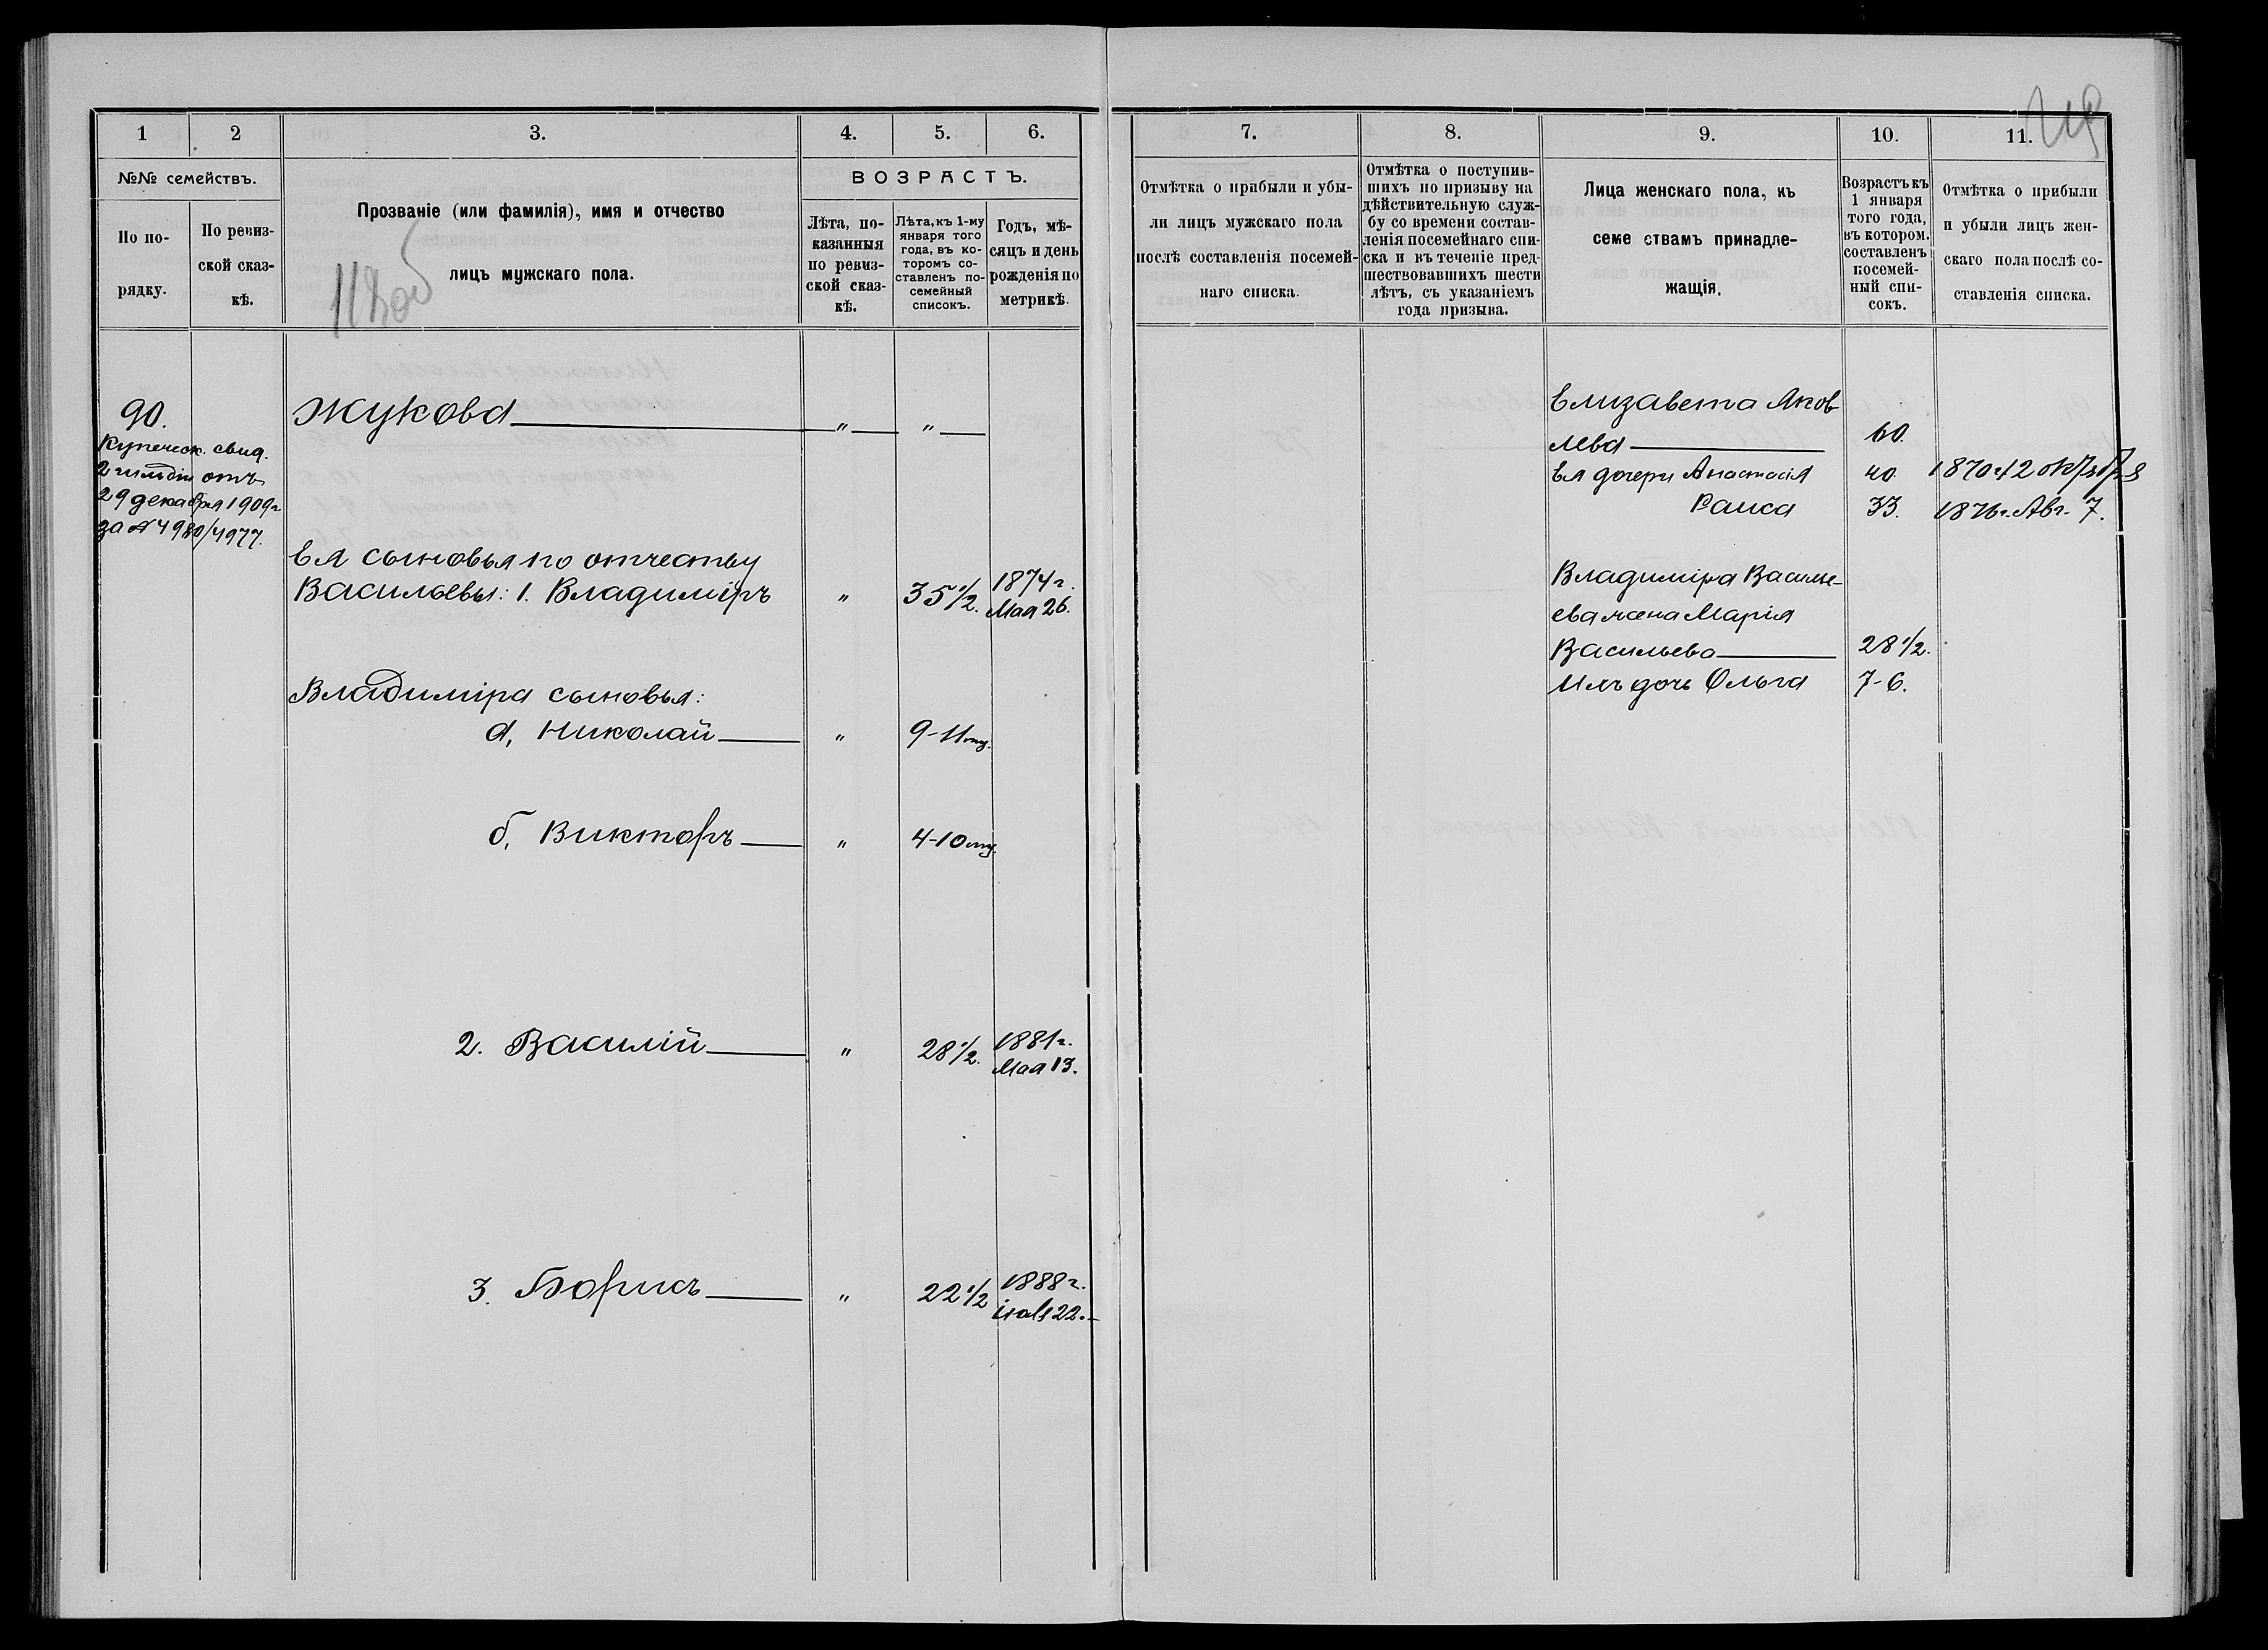 1
2
3.
4.
5.
6.
№№ семействъ.
ВОЗРАСТЪ.
По по-
рядку.
По ревиз-
ской сказ-
кѣ.
Прозваніе (или фамилія), имя и отчество
лицъ мужскаго пола.
Лѣта, по-
казанныя
по ревиз-
ской сказ-
кѣ.
Лѣта, къ 1-му
января того
года, въ ко-
торомъ со-
ставленъ по-
семейный
списокъ.
Годъ, мѣ-
сяцъ и день
рожденія по
метрикѣ.
90.
Купеческ. свид.
2 гильдіи отъ
29 декабря 1909 г
за № 4980/4977.
Жукова " "
Ея сыновья по отчеству
Васильевы: 1. Владиміръ " 35 1/2. 1874 г.
Мая 26.
Владиміра сыновья:
а, Николай " 9-11 м.
б, Викторъ " 4-10 м.
2. Василій " 28 1/2. 1881 г.
Мая 13.
3. Борисъ " 22 1/2 1888 г.
22.
7.
8.
9.
10.
11.
Отмѣтка о прибыли и убы-
ли лицъ мужскаго пола
послѣ составленія посемей-
наго списка.
Отмѣтка о поступив-
шихъ по призыву на
дѣйствительную служ-
бу со времени состав-
ленія посемейнаго спи-
ска и въ теченіе пред-
шествовавшихъ шести
лѣтъ, съ указаніемъ
года призыва.
Лица женскаго пола, къ
семе ствамъ принадле-
жащія.
Возрастъ къ
1 января
того года,
въ котором.
составленъ
посемей-
ный спи-
сокъ.
Отмѣтка о прибыли
и убыли лицъ жен-
скаго пола послѣ со-
ставленія списка.
Елизавета Яков
лева 60.
Ея дочери Анастасія 40. 1870
Раиса 33. 1876 г. Авг. 7.
Владиміра Василь-
ева жена Марія
Васильева 28 1/2.
Ихъ дочь Ольга 7-6.